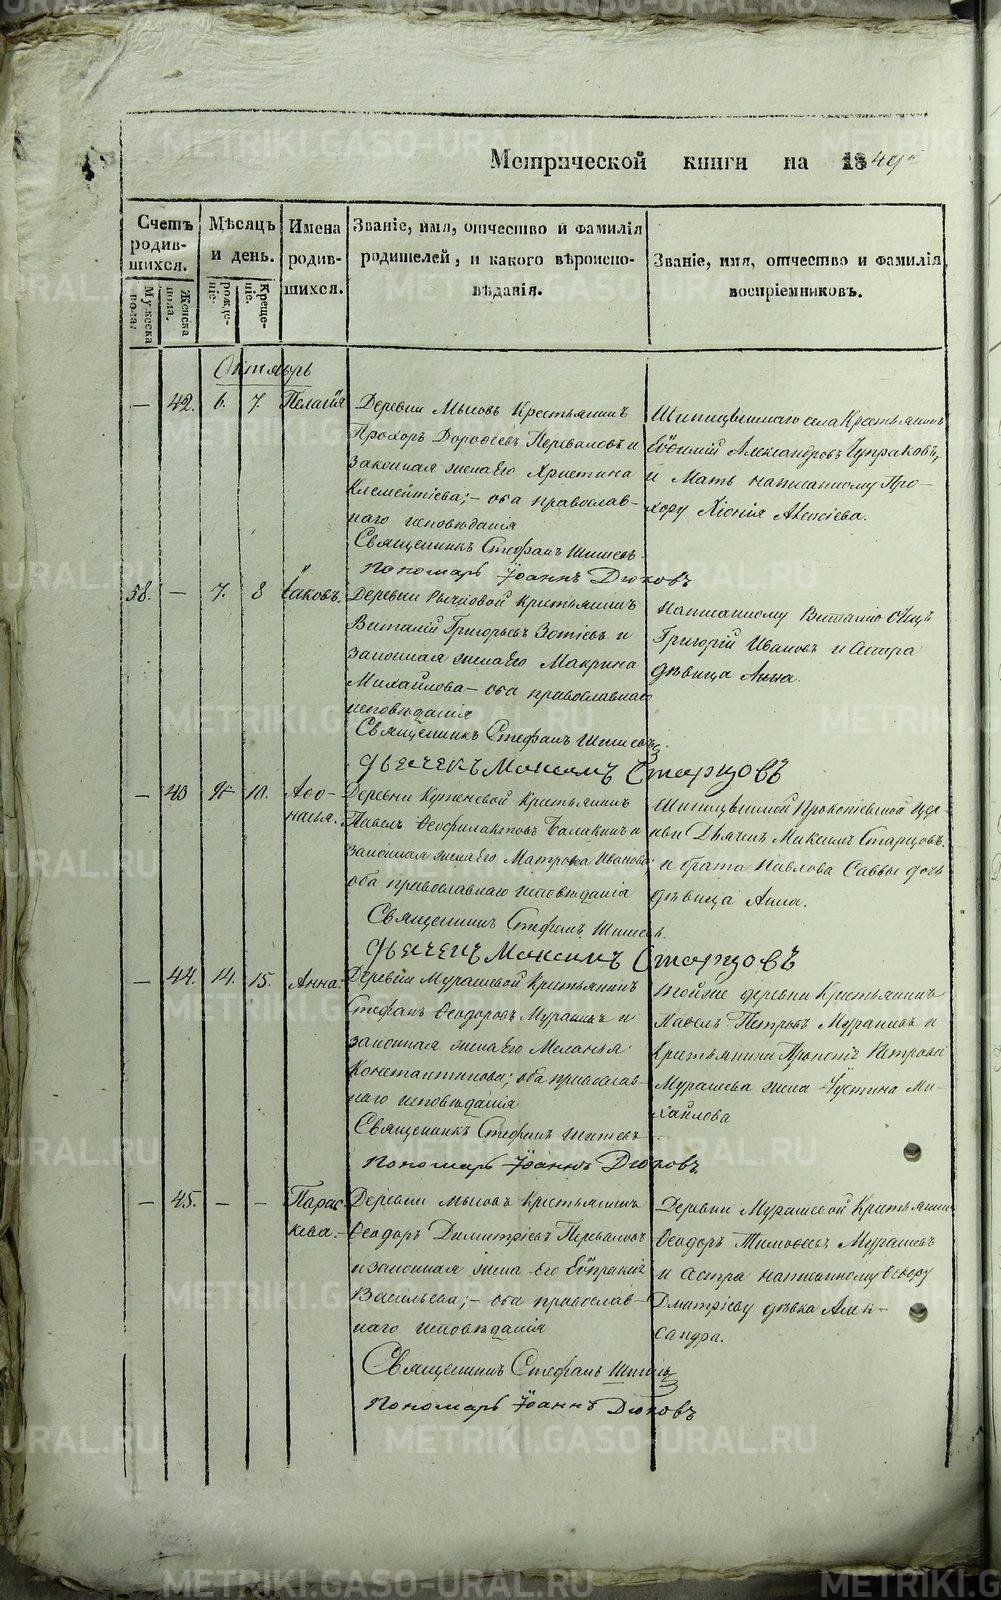 Метрической книги на 1849й
Счетъ родив-шихся.
Мужеска пола.
Женска пола.
Мѣсяцъ и день.
рожде-ніе.
Креще-ніе.
Имена родив-шихся.
Званіе, имя, отчество и фамилія
родителей, и какого вѣроиспо-
вѣданія.
Званіе, имя, отчество и фамилія
воспріемниковъ.
Октябрь
— 42. 6. 7. Пелагія
Деревни Мысовъ Крестьянинъ
Прохоръ Дороѳеевъ Переваловъ и
законная жена его Христина
Клементіева; — оба православ-
наго исповѣданія
Священникъ Стефанъ
Пономарь Іоаннъ Дюковъ
села Крестьянинъ
Евѳимій Александровъ Чупраковъ,
и Мать написанному Про-
хору Хіонія Алексіева.
58. — 7. 8 Іаковъ.
Деревни Крестьянинъ
Виталій Григорьевъ Зотіевъ и
законная жена его Макрина
Михайлова — оба православнаго
исповѣданія
Священникъ Стефанъ
Дьячекъ Максимъ Старцовъ
Написанному Виталію Отецъ
Григорій Ивановъ и Сестра
дѣвица Анна.
— 43 9 10. Аѳо-
насья.
Деревни Крестьянинъ
Павелъ Ѳеофилактовъ Балакинъ и
законная жена его Матрона Иванова;
оба православнаго исповѣданія
Священникъ Стефанъ
Дьячекъ Максимъ Старцовъ
Прокопіевской Цер-
кви Дьячекъ Максимъ Старцовъ
и брата Павлова Саввы дочь
дѣвица Анна.
— 44. 14. 15. Анна.
Деревни Мурашевой Крестьянинъ
Стефанъ Ѳеодоровъ Мурашевъ и
законная жена его Меланья
Константинова; оба православ-
наго исповѣданія
Священникъ Стефанъ
Пономарь Іоаннъ Дюковъ
тойже деревни Крестьянинъ
Павелъ Петровъ Мурашевъ и
Крестьянина Прокопія Петрова
Мурашева жена Іустина Ми-
хайлова
— 45. — — Парас-
кева.
Деревни Мысовъ Крестьянинъ
Ѳеодоръ Димитріевъ Переваловъ
и законная жена его Евпраксія
Васильева; — оба православ-
наго исповѣданія
Священникъ Стефанъ
Пономарь Іоаннъ Дюковъ
Деревни Мурашевой Крестьянинъ
Ѳеодоръ Тимоѳеевъ Мурашевъ
и сестра написанному Ѳеодору
Дмитріеву дѣвка Алек-
сандра.
METRIKI.GASO-URAL.RU